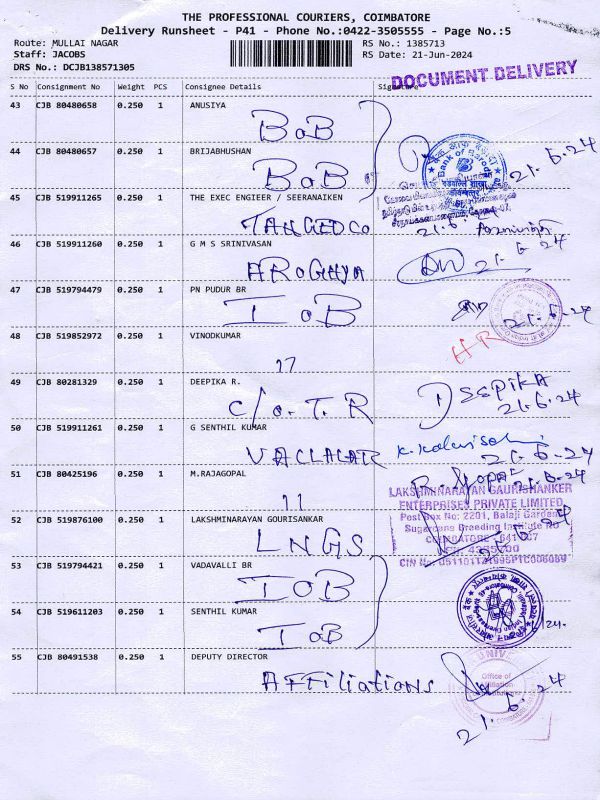 THE PROFESSIONAL COURIERS, COIMBATORE
Delivery Runsheet - P41 - Phone No.:0422-3505555 - Page No.:5
Route: MULLAI NAGAR
RS No.: 1385713
Staff: JACOBS
RS Date: 21-Jun-2024
DRS No.: DCJB138571305
DOCUMENT DELIVERY
S No Consignment No Weight PCS Consignee Details Signature
43 CJB 80480658 0.250 1 ANUSIYA
BOB
44 CJB 80480657 0.250 1 BRIJABHUSHAN
BOB
Bank of Baroda
21.6.24
45 CJB 519911265 0.250 1 THE EXEC ENGIEER / SEERANAIKEN
TANGEDCO
21.6.24
46 CJB 519911260 0.250 1 G M S SRINIVASAN
AROGHYA
21.6.24
47 CJB 519794479 0.250 1 PN PUDUR BR
IOB
21.6.24
48 CJB 519852972 0.250 1 VINODKUMAR
HR
49 CJB 80281329 0.250 1 DEEPIKA R.
C/o.T.R
DEEPIKA
21.6.24
50 CJB 519911261 0.250 1 G SENTHIL KUMAR
21.6.24
51 CJB 80425196 0.250 1 M.RAJAGOPAL
21.6.24
LAKSHMINARAYAN GAURISHANKER
ENTERPRISES PRIVATE LIMITED
Post Box No: 2201, Balaji Garden
Sugarcane Breeding Institute
COIMBATORE - 641 007
52 CJB 519876100 0.250 1 LAKSHMINARAYAN GOURISANKAR
LNGS
53 CJB 519794421 0.250 1 VADAVALLI BR
IOB
54 CJB 519611203 0.250 1 SENTHIL KUMAR
IOB
55 CJB 80491538 0.250 1 DEPUTY DIRECTOR
AFFiliations
Office of
21.6.24